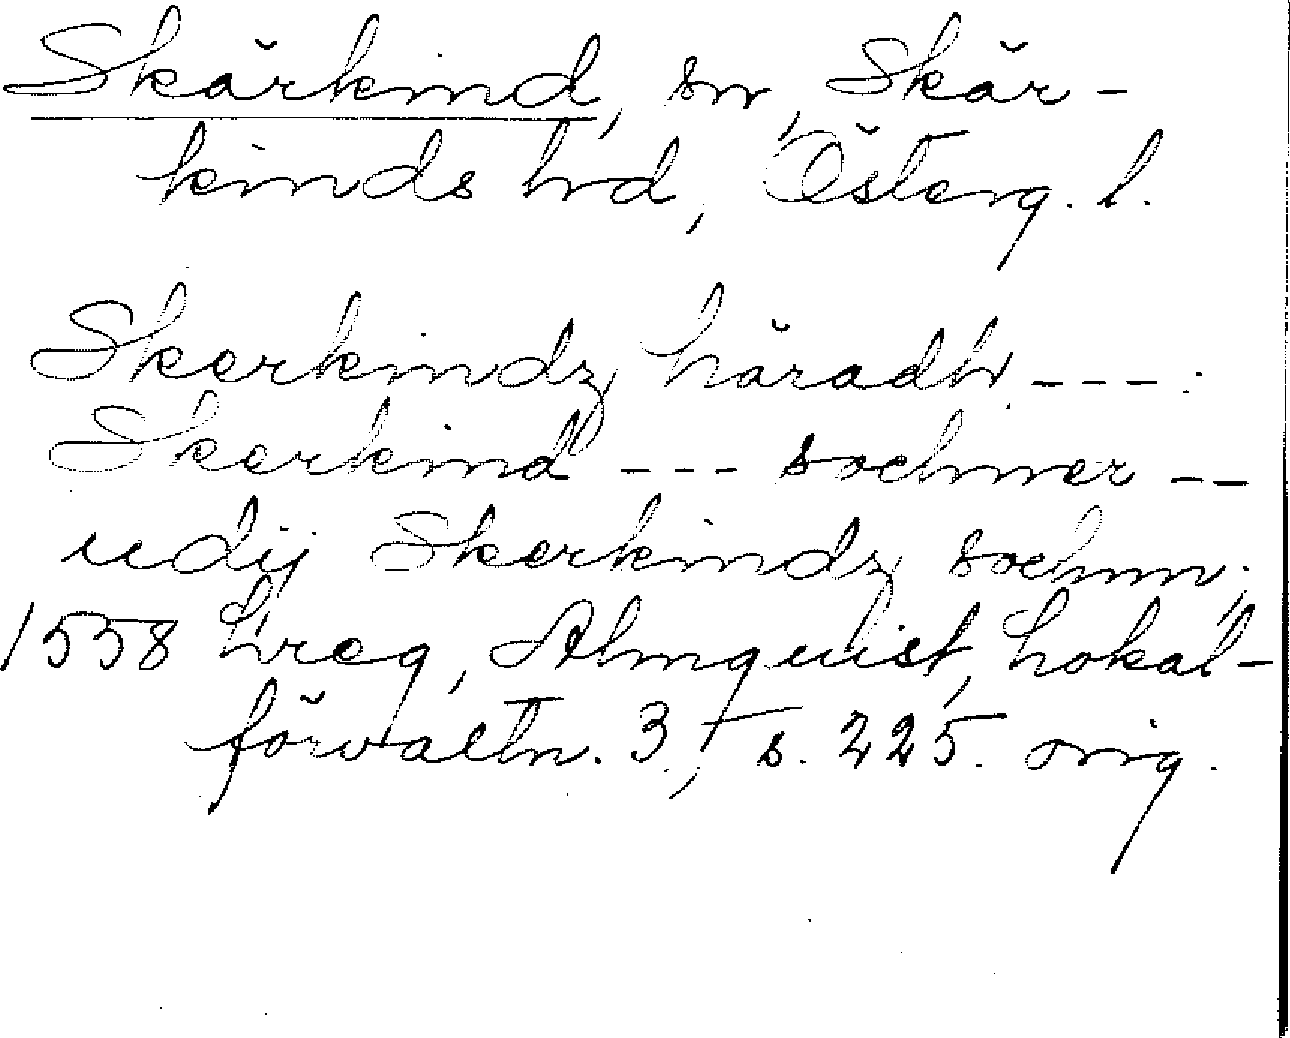 Skärkind, sn, Skär-
kinds hd, Österg. l.
Skerkindz häradh ---.
Skerkind --- sochner --
udij Skerkindz sochnn,
1558 hreg, Almquist, Lokal-
förvaltn. 3, s. 225. orig.